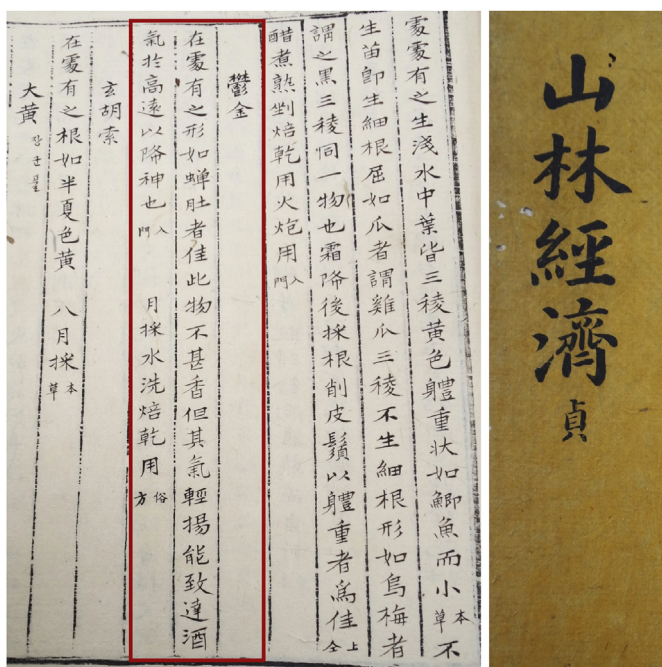 處處有之生淺水中葉皆三稜黃色軆重状如鯽魚而小 本草 不
生苗卽生細根屈如爪者謂雞爪三稜不生細根形如烏梅者
謂之黑三稜同一物也霜降後採根削皮鬚以軆重者爲佳 上仝
醋煮熟剉焙乾用火炮用 入門
鬱金
在處有之形如蟬肚者佳此物不甚香但其氣輕揚能致達酒
氣於高遠以降神也 入門 月採水洗焙乾用 俗方
玄胡索
在處有之根如半夏色黃 八月採 本草
大黃 쟝군풀
山林經濟 貞